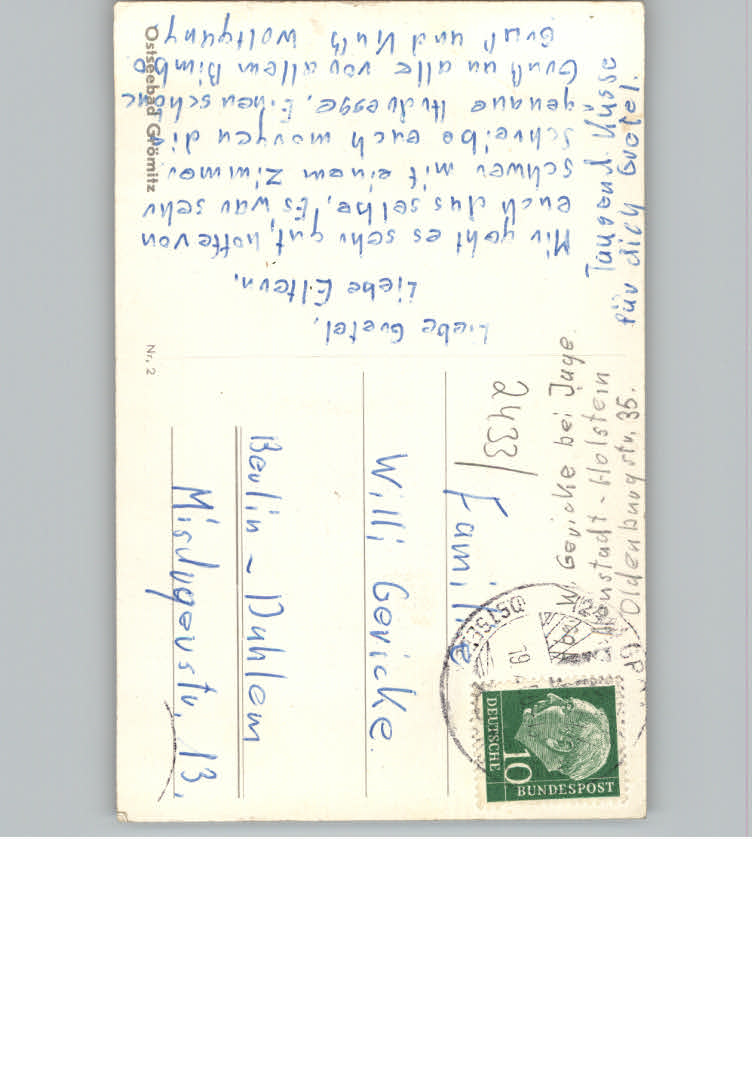 Liebe Gretel,
Liebe Eltern,
Mir geht es sehr gut, hoffe von
euch das selbe. Es war sehr
schwer mit einem Zimmer
schreibe euch morgen die
genaue Adresse. Einen schönen
Gruß an alle vor allem Bimbo
Gruß und Kuß Wolfgang
Tausend Küsse
für dich Gretel.
W. Gericke bei Juge.
Neustadt-Holstein
Oldenburgstr. 35.
2433
Familie
Willi Gericke.
Berlin - Dahlem
Misdroyerstr. 13.
Ostseebad Grömitz
Nr. 2
OSTSEE
19
10
DEUTSCHE
BUNDESPOST